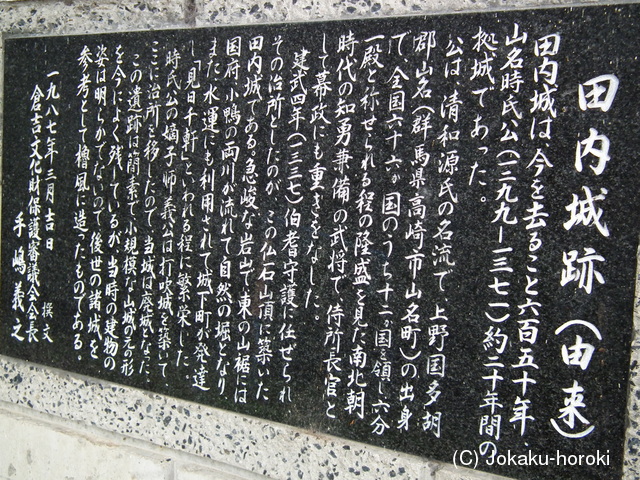 田内城跡(由来)
田内城は、今を去ること六百五十年、
山名時氏公(一二九九ー一三七一)約二十年間の
拠城であった。
公は、清和源氏の名流で、上野国多胡
郡山名(群馬県高崎市山名町)の出身
で、全国六十六ヶ国のうち十二ヶ国を領し六分
一殿と称せられる程の隆盛を見た南北朝
時代の知勇兼備の武将で、侍所長官と
して幕政にも重きをなした。
建武四年(一三三七)伯耆守護に任ぜられ
その治所としたのが、この仏石山頂に築いた
田内城である。急峻な岩山で東の山裾には
国府、小鴨の両川が流れて自然の堀となり
また、水運にも利用されて城下町が発達
し「見日千軒」といわれる程に繁栄した。
時氏公の嫡子師義公は打吹城を築いて、
ここに治所を移したので、当城は廃城となった。
この遺跡は簡素で小規模な山城の元の形
を今によく残しているが、当時の建物の
姿は明らかでないので、後世の諸城を
参考として櫓風に造ったものである。
一九八七年三月吉日 撰文
倉吉文化財保護審議会会長
手嶋義之
(C) Jokaku-horoki